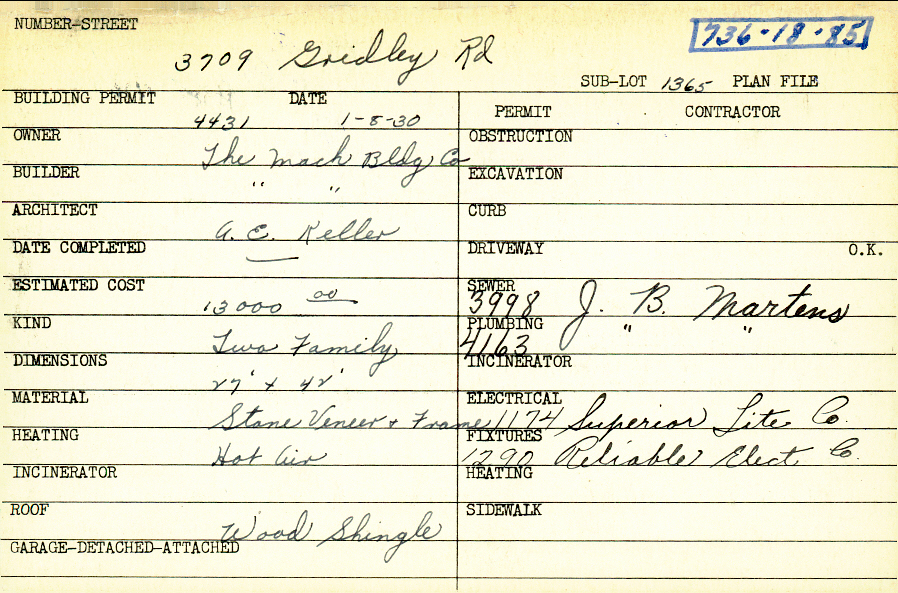 NUMBER-STREET
736-18-85
3709 Gridley Rd
SUB-LOT 1365 PLAN FILE
BUILDING PERMIT DATE
4431 1-8-30
OWNER
The Mach Bldg Co
BUILDER
" "
ARCHITECT
A. E. Keller
DATE COMPLETED
ESTIMATED COST
13000 00
KIND
Two Family
DIMENSIONS
27' x 42'
MATERIAL
Stone Veneer + Frame
HEATING
Hot Air
INCINERATOR
ROOF
Wood Shingle
GARAGE-DETACHED-ATTACHED
PERMIT CONTRACTOR
OBSTRUCTION
EXCAVATION
CURB
DRIVEWAY O.K.
SEWER
3998 J. B. Martens
PLUMBING
4163 " "
INCINERATOR
ELECTRICAL
1174 Superior Lite Co.
FIXTURES
1290 Reliable Elect Co.
HEATING
SIDEWALK